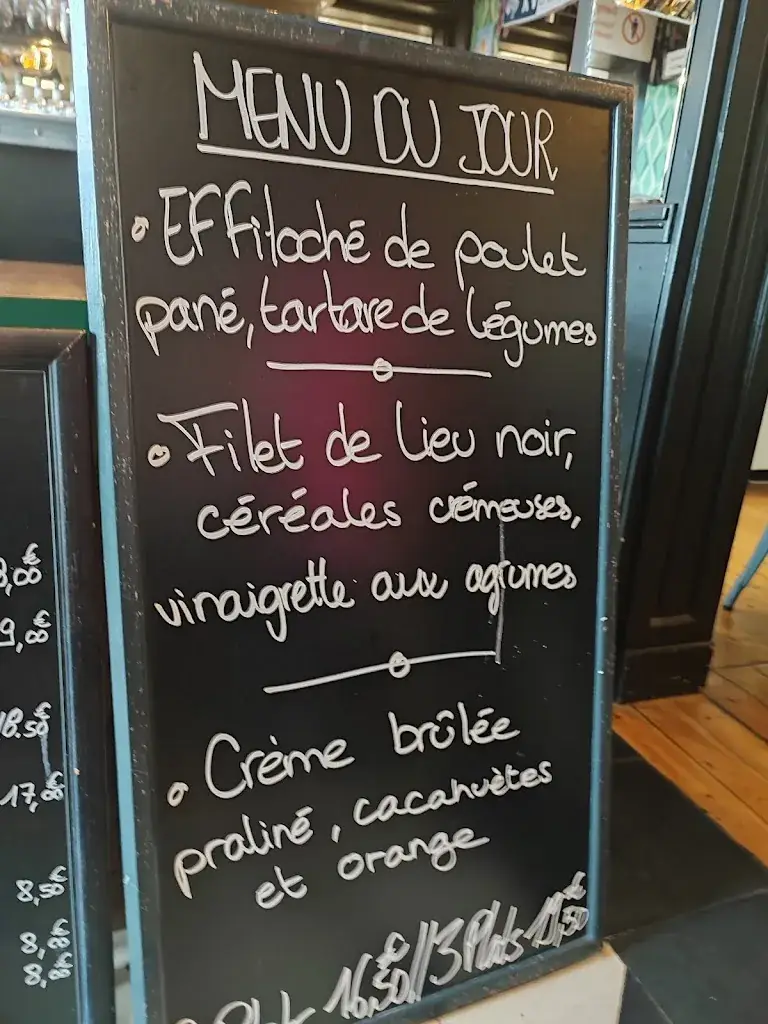 MENU DU JOUR
• Effiloché de poulet
pané, tartare de légumes
• Filet de lieu noir,
céréales crémeuses,
vinaigrette aux agrumes
• Crème brûlée
praliné, cacahuètes
et orange
16,50€ // 3 Plats 19,50€
9,00€
18.50€
17,00€
8,50€